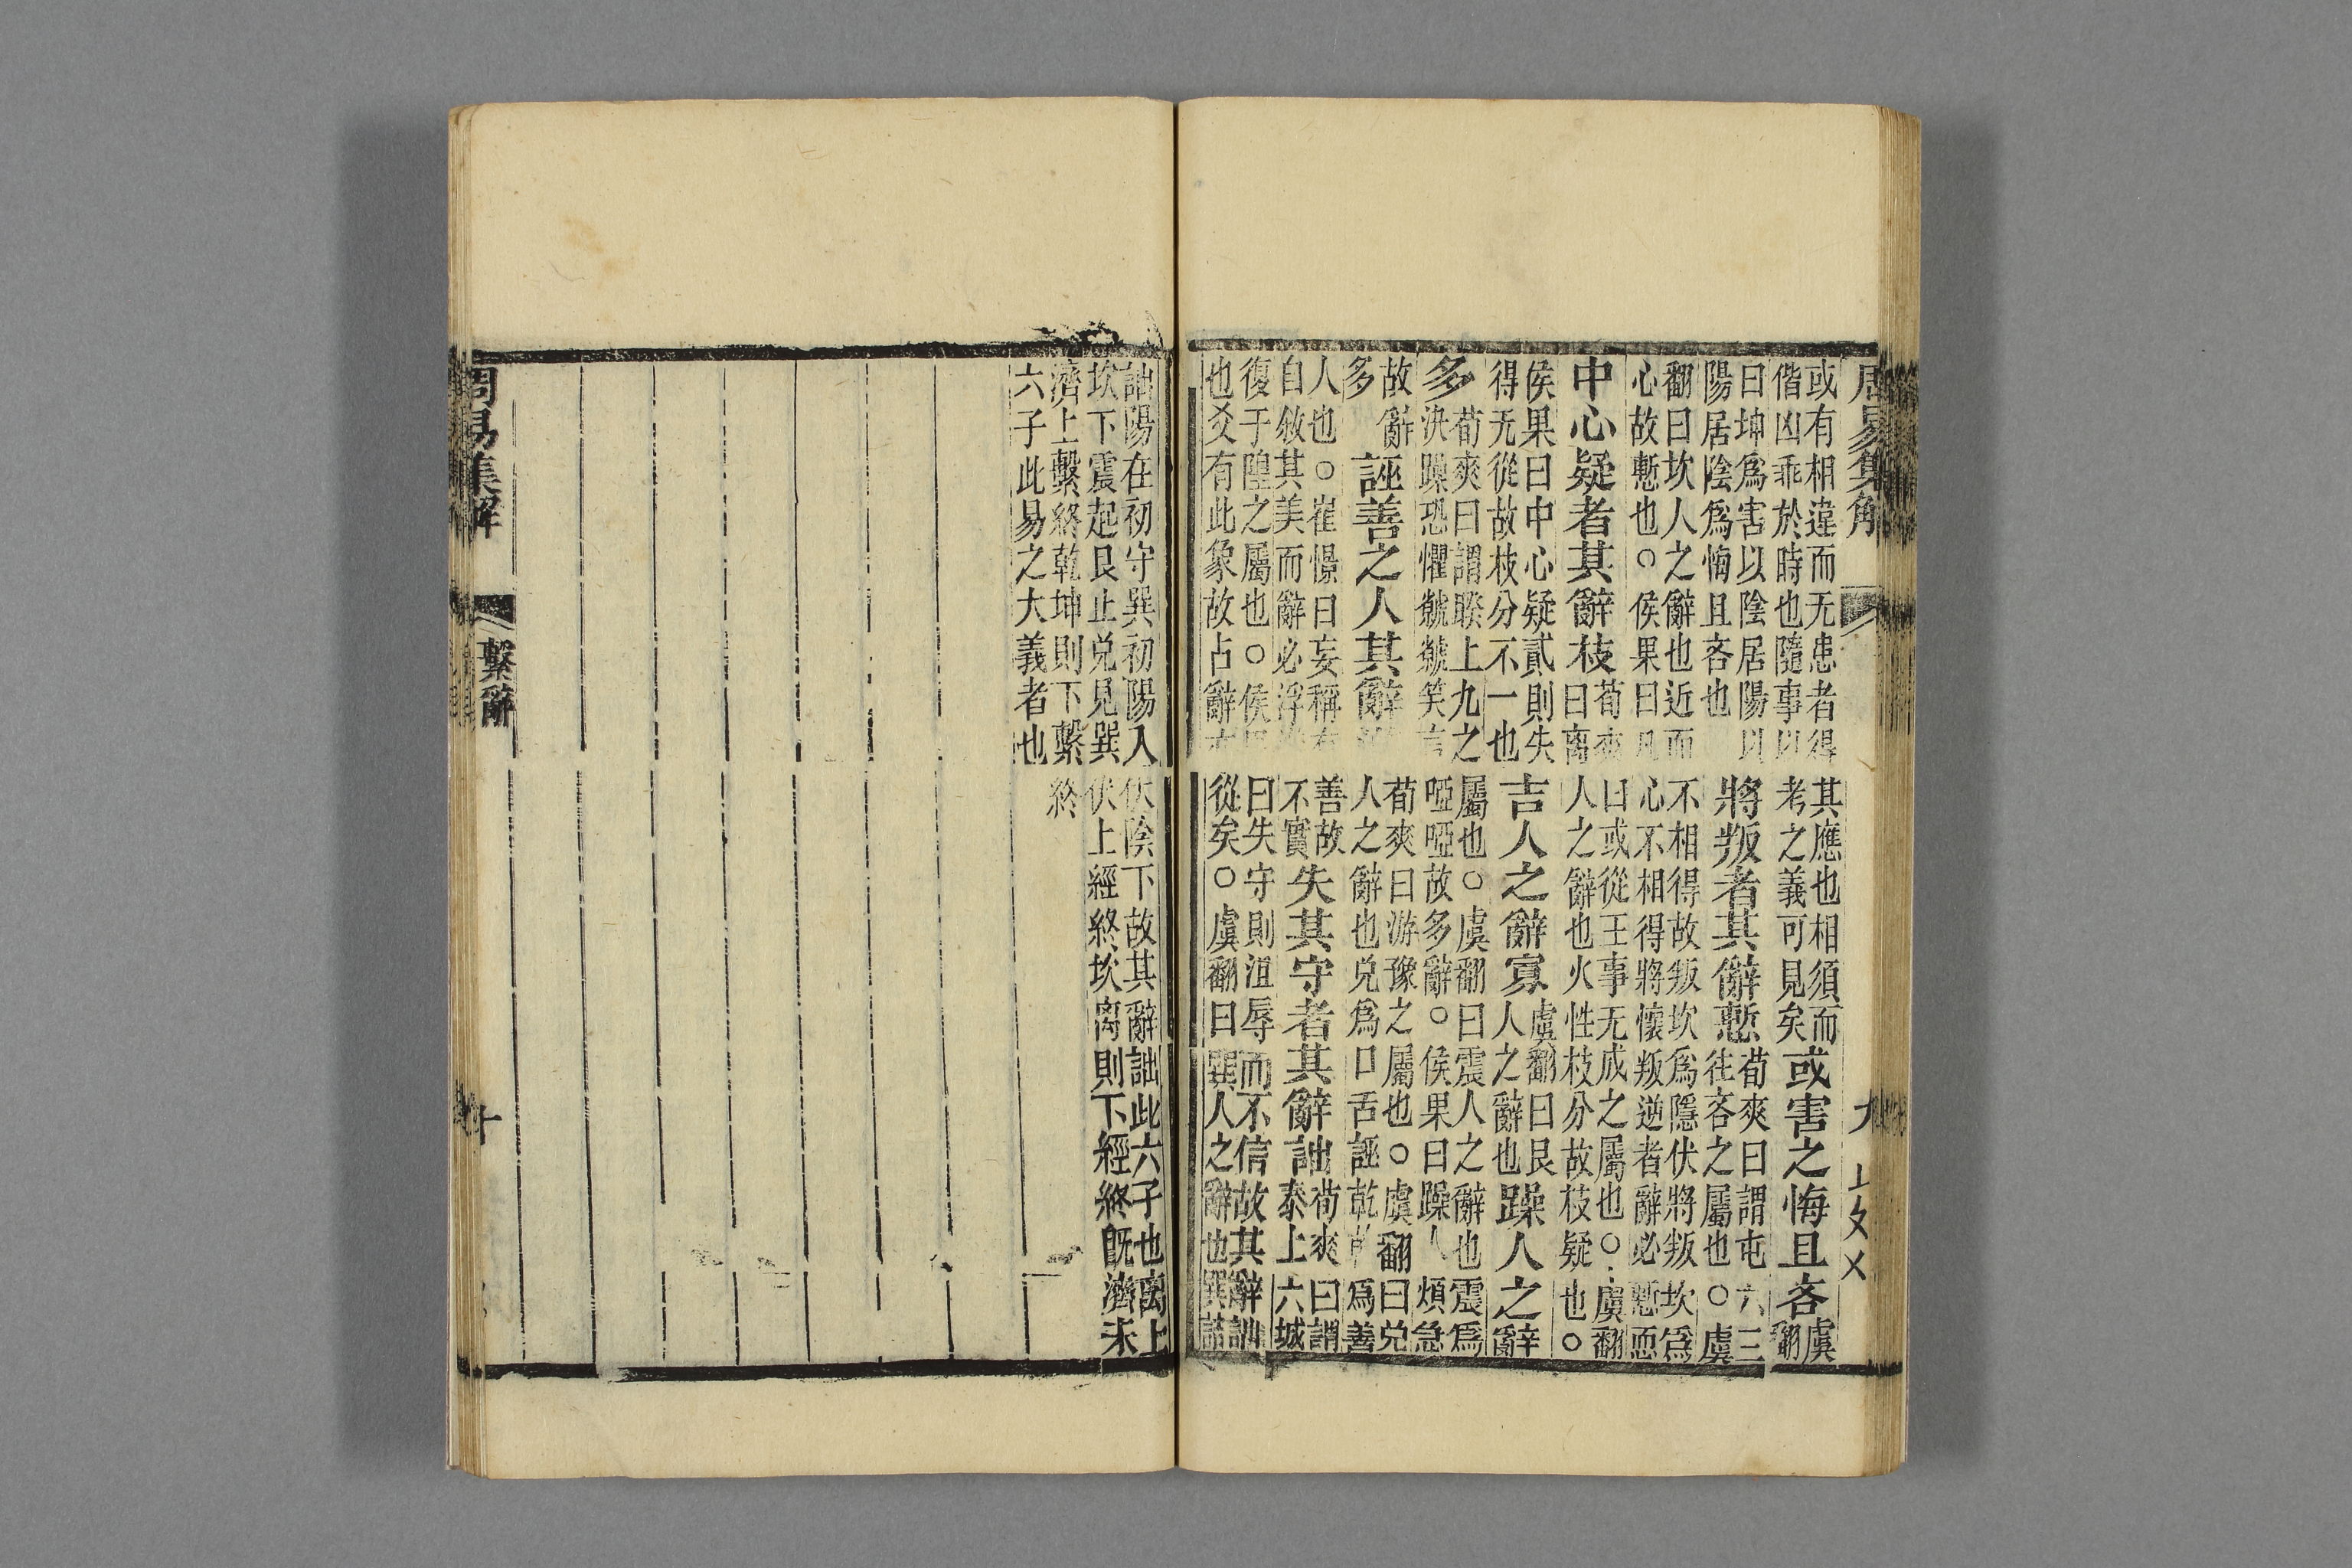 周易集解
九
或有相違而无患者得其應也相須而
偕凶乖於時也隨事以考之義可見矣
或害之悔且吝
虞
翻
曰坤爲害以陰居陽以
陽居陰爲悔且吝也
將叛者其辭慙
荀爽曰謂屯六三
往吝之屬也○虞
翻曰坎人之辭也近而不相得故叛坎爲隱伏將叛坎爲
心故慙也○侯果曰凡心不相得將懷叛逆者辭必慙恧
中心疑者其辭枝
荀爽曰或從王事无成之屬也○虞翻
曰离人之辭也火性枝分故枝疑也○
侯果曰中心疑貳則失
得无從故枝分不一也
吉人之辭寡
虞翻曰艮
人之辭也
躁人之辭
多
荀爽曰謂睽上九之屬也○虞翻曰震人之辭也震爲
決躁恐懼虩虩笑言啞啞故多辭○侯果曰躁人煩急
故辭
多
誣善之人其辭
荀爽曰游豫之屬也○虞翻曰兌
人之辭也兌爲口舌誣乾爲善
人也○崔憬曰妄稱有善故
自敘其美而辭必浮不實
失其守者其辭詘
荀爽曰謂
泰上六城
復于隍之屬也○侯曰失守則沮辱而不信故其辭詘
也爻有此象故占辭從矣○虞翻曰巽人之辭也巽詰
詘陽在初守巽初陽入伏陰下故其辭詘此六子也离上
坎下震起艮止兌見巽伏上經終坎离則下經終既濟未
濟上繫終乾坤則下繫終
六子此易之大義者也
周易集解
繫辭
十